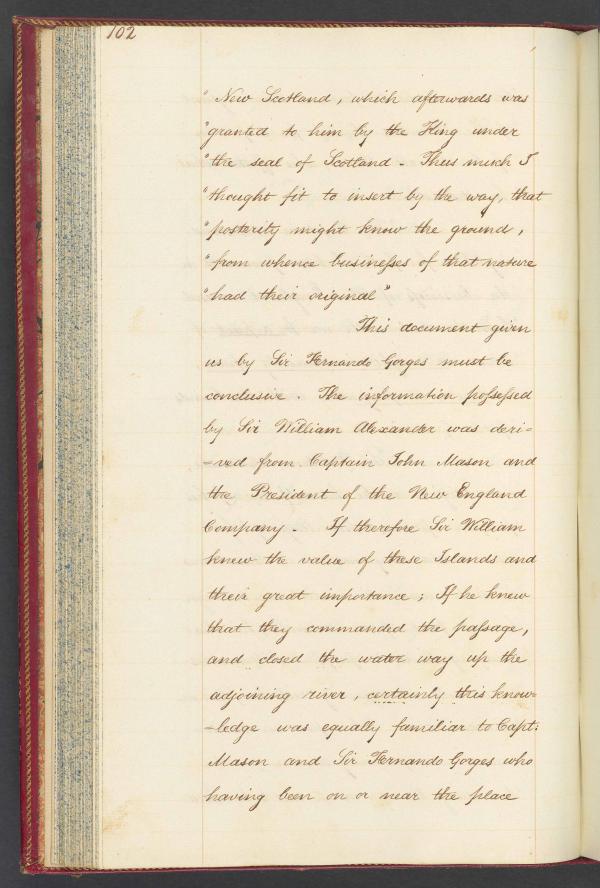 102
" New Scotland, which afterwards was
"granted to him by the King under
"the seal of Scotland - Thus much I
"thought fit to insert by the way, that
"posterity might know the ground,
"from whence businesses of that nature
"had their original"
This document given
us by Sir Fernando Gorges must be
conclusive. The information possessed
by Sir William Alexander was deri-
-ved from Captain John Mason and
the President of the New England
Company - If therefore Sir William
knew the value of these Islands and
their great importance; If he knew
that they commanded the passage,
and closed the water way up the
adjoining river, certainly this know-
-ledge was equally familiar to Capt:
Mason and Sir Fernando Gorges who
having been on or near the place